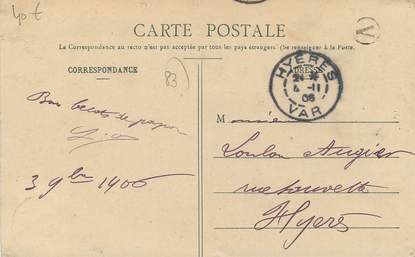 40 t
CARTE POSTALE
La Correspondance au recto n'est pas acceptée par tous les pays étrangers (Se renseigner à la Poste.
CORRESPONDANCE
ADRESSE
83
V
HYÈRES
4 -11
06
VAR
Bon de
3 9bre 1906
Monsieur
Loulou Augier
rue
Hyères